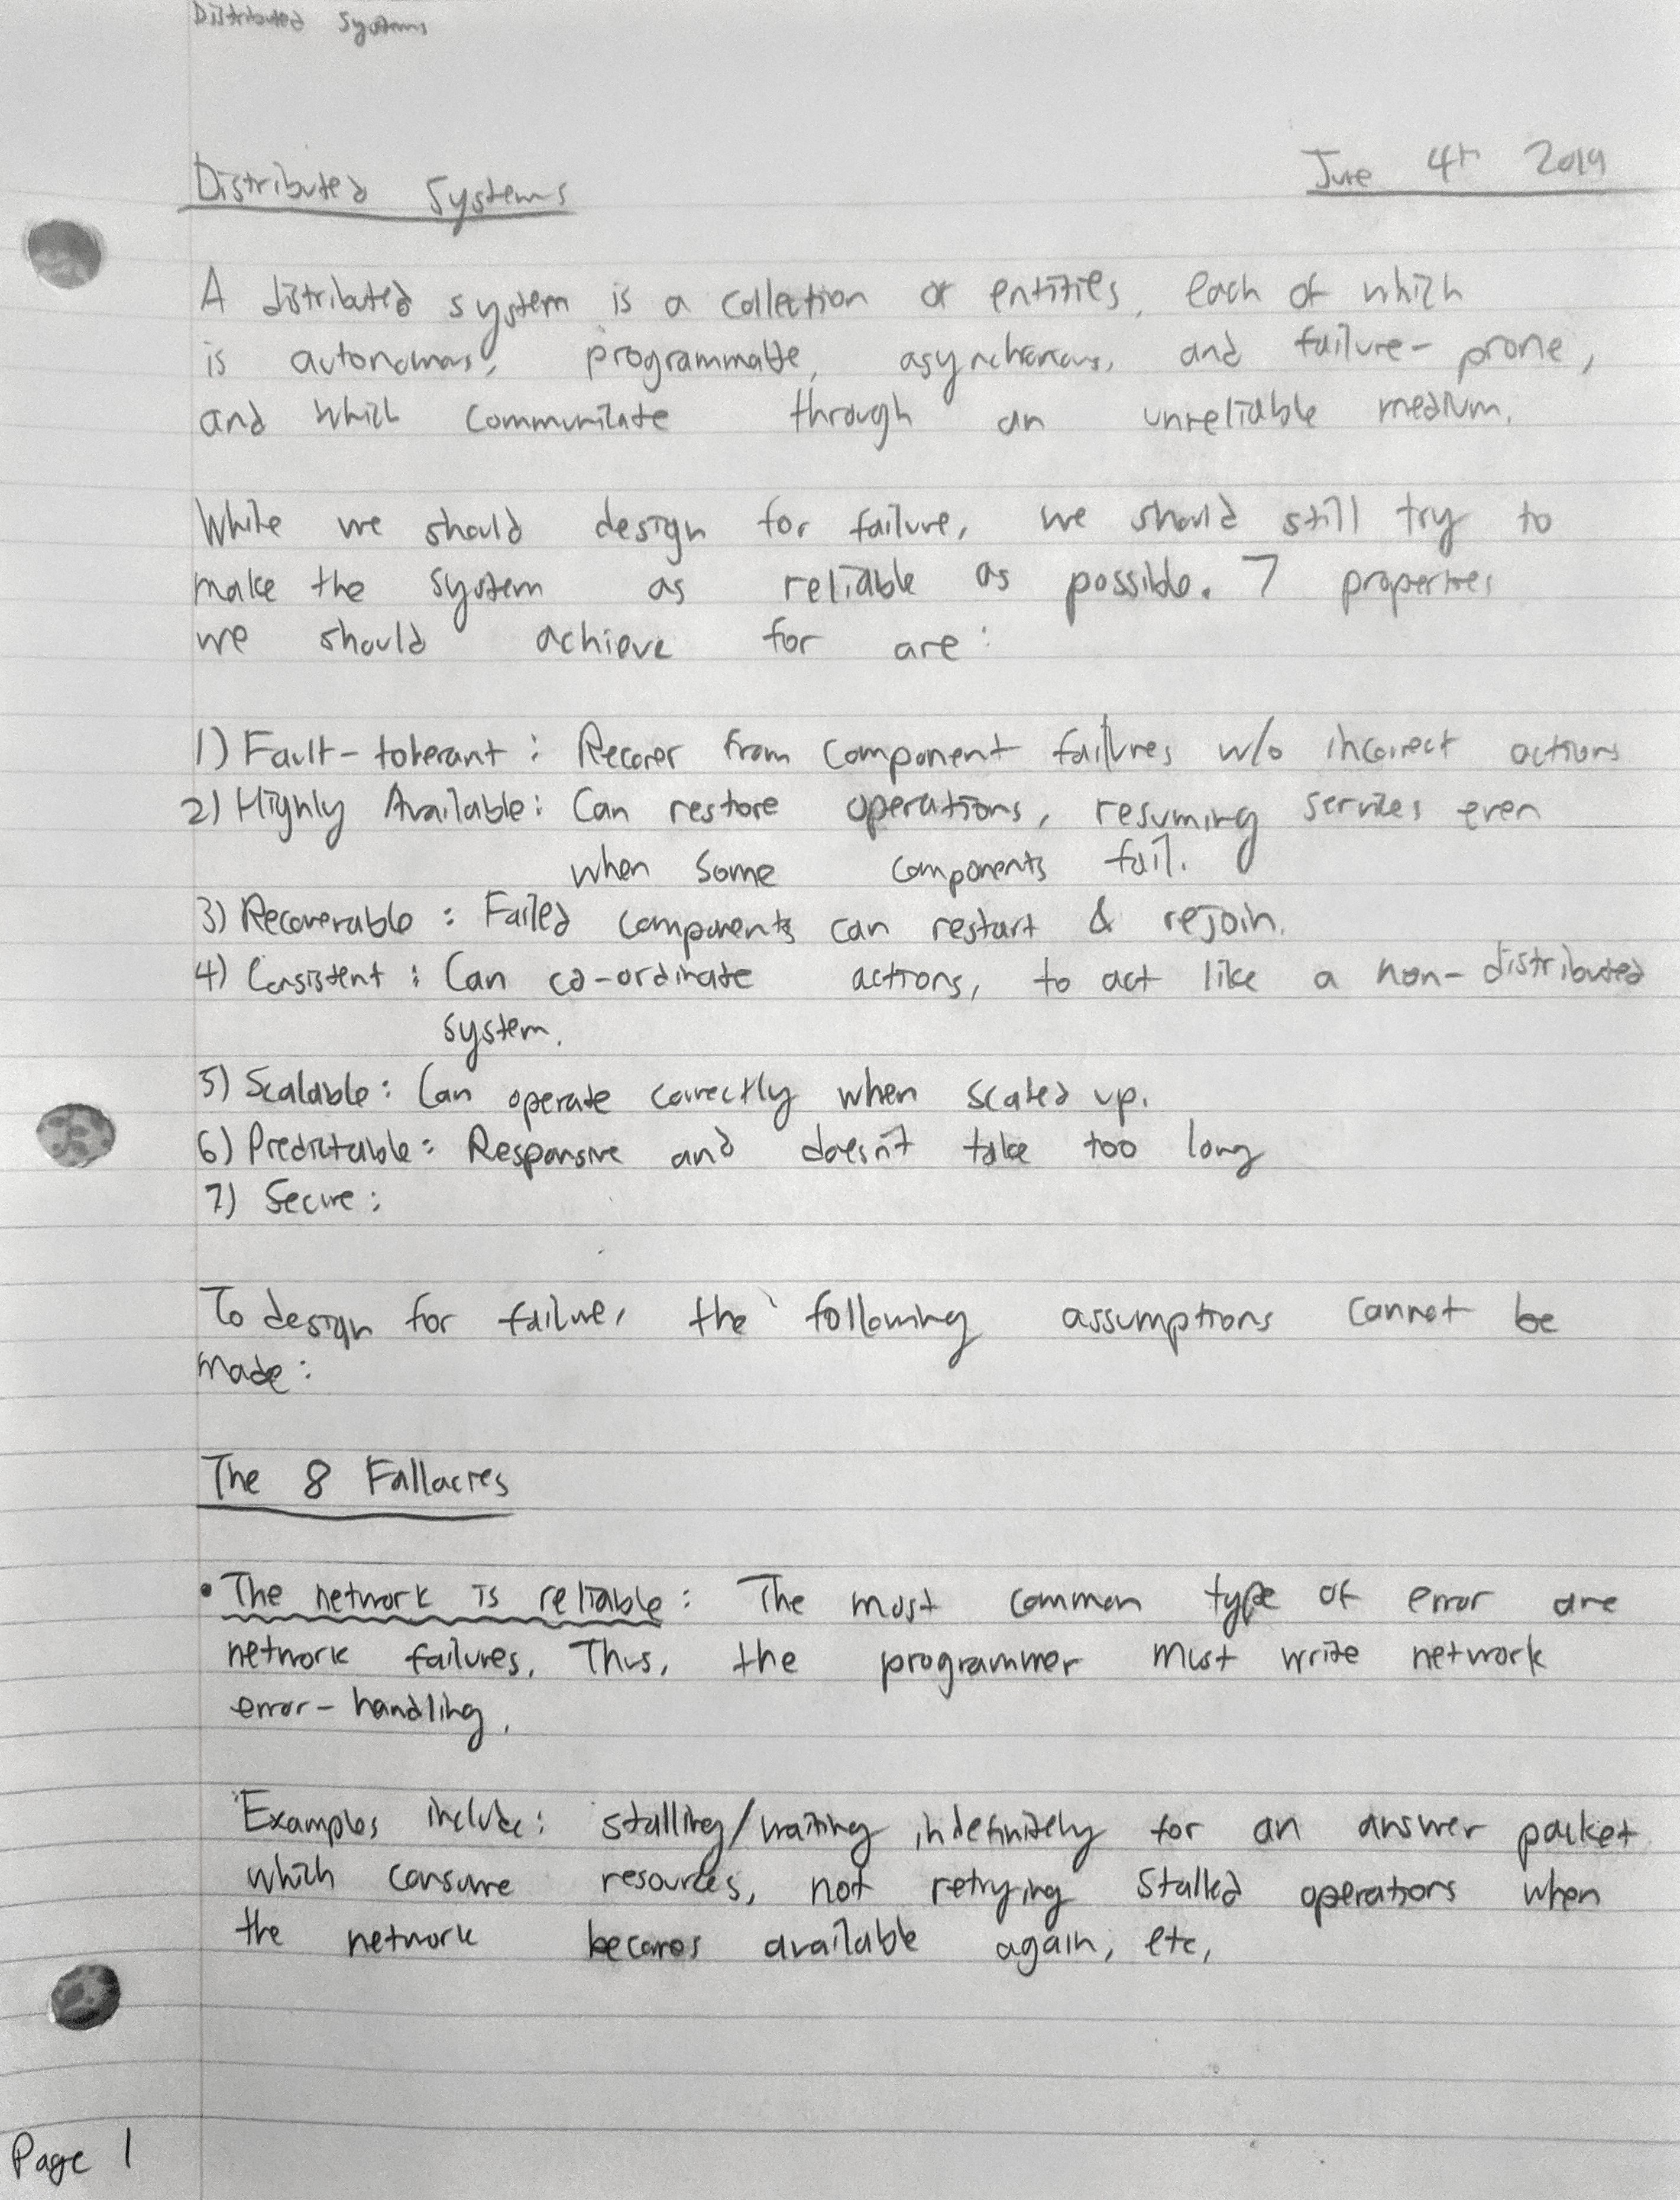 Distributed Systems
Distributed Systems June 4th 2019
A distributed system is a collection of entities, each of which
is autonomous, programmable, asynchronous, and failure-prone,
and which communicate through an unreliable medium.
While we should design for failure, we should still try to
make the system as reliable as possible. 7 properties
we should achieve for are:
1) Fault-tolerant: Recover from component failures w/o incorrect actions
2) Highly Available: Can restore operations, resuming services even
when some components fail.
3) Recoverable: Failed components can restart & rejoin.
4) Consistent: Can co-ordinate actions, to act like a non-distributed
system.
5) Scalable: Can operate correctly when scaled up.
6) Predictable: Responsive and doesn't take too long
7) Secure:
To design for failure, the following assumptions cannot be
made:
The 8 Fallacies
• The network is reliable: The most common type of error are
network failures. Thus, the programmer must write network
error-handling.
Examples include: stalling/waiting indefinitely for an answer packet
which consume resources, not retrying stalled operations when
the network becomes available again, etc,
Page 1